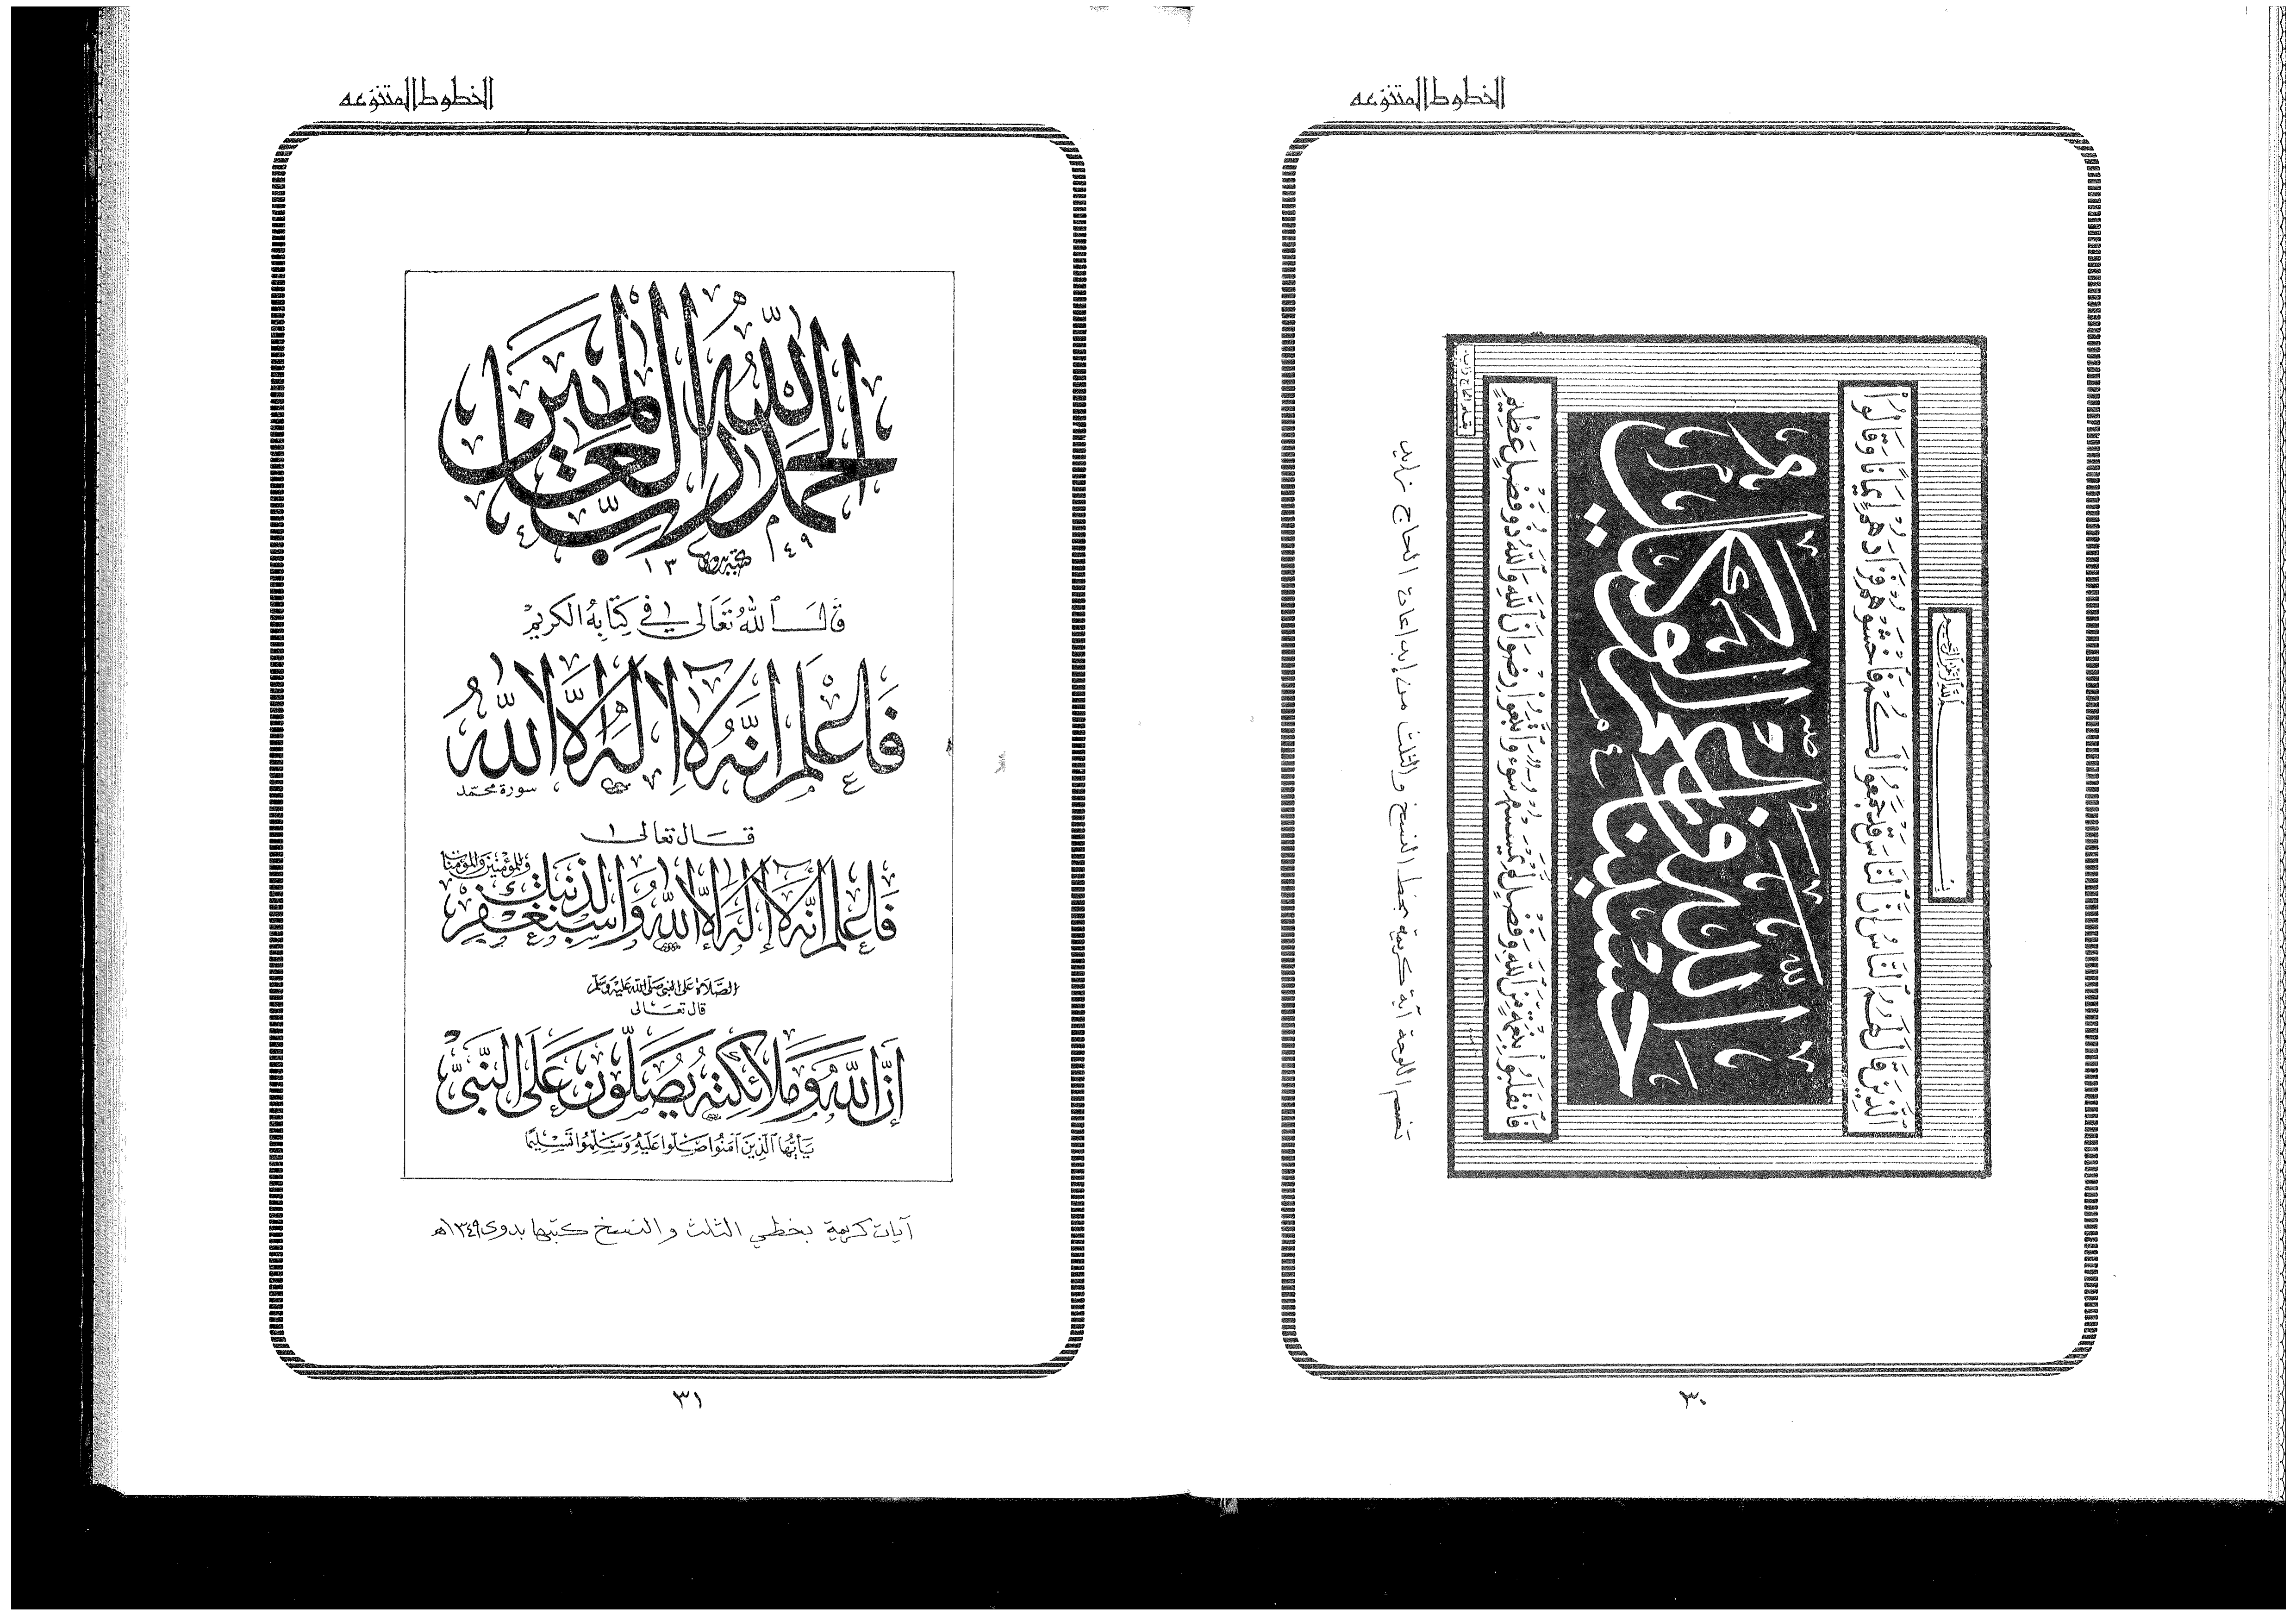 الخطوط المتنوعه
بسم الله الرحمن الرحيم
ٱلَّذِينَ قَالَ لَهُمُ ٱلنَّاسُ إِنَّ ٱلنَّاسَ قَدْ جَمَعُوا۟ لَكُمْ فَٱخْشَوْهُمْ فَزَادَهُمْ إِيمَٰنًا وَقَالُوا۟
حسبنا الله ونعم الوكيل
فَٱنقَلَبُوا۟ بِنِعْمَةٍ مِّنَ ٱللَّهِ وَفَضْلٍ لَّمْ يَمْسَسْهُمْ سُوٓءٌ وَٱتَّبَعُوا۟ رِضْوَٰنَ ٱللَّهِ وَٱللَّهُ ذُو فَضْلٍ عَظِيمٍ
تضم اللوحة آية كريمة بخط النسخ والثلث من إبداعات الحاج زايد
٣٠
الخطوط المتنوعه
الحمد لله رب العالمين
كتبه بدوي ١٣٤٩
قَالَ ٱللهُ تَعَالى في كِتَابِهُ الكريم
فَاعْلَمْ اَنَّهُ لَا اِلٰهَ اِلَّا اللهُ
سورة محمّد
قال تعالى
فَاعْلَمْ أَنَّهُ لَا إِلٰهَ إِلَّا اللهُ وَاسْتَغْفِرْ لِذَنْبِكَ وَلِلمُؤْمِنِينَ وَالمُؤْمِنَاتِ
الصَّلَاة عَلى النبيّ صَلّى الله عَليْهِ وَسَلّم
قال تعَالى
إِنَّ اللهَ وَمَلَائِكَتَهُ يُصَلُّونَ عَلَى النَّبِيِّ
يَأَيُّهَا ٱلَّذِينَ آمَنُوا صَلُّوا عَلَيْهِ وَسَلِّمُوا تَسْلِيمًا
آيات كريمة بخطي الثلث و النسخ كتبها بدوى ١٣٤٩ه
٣١